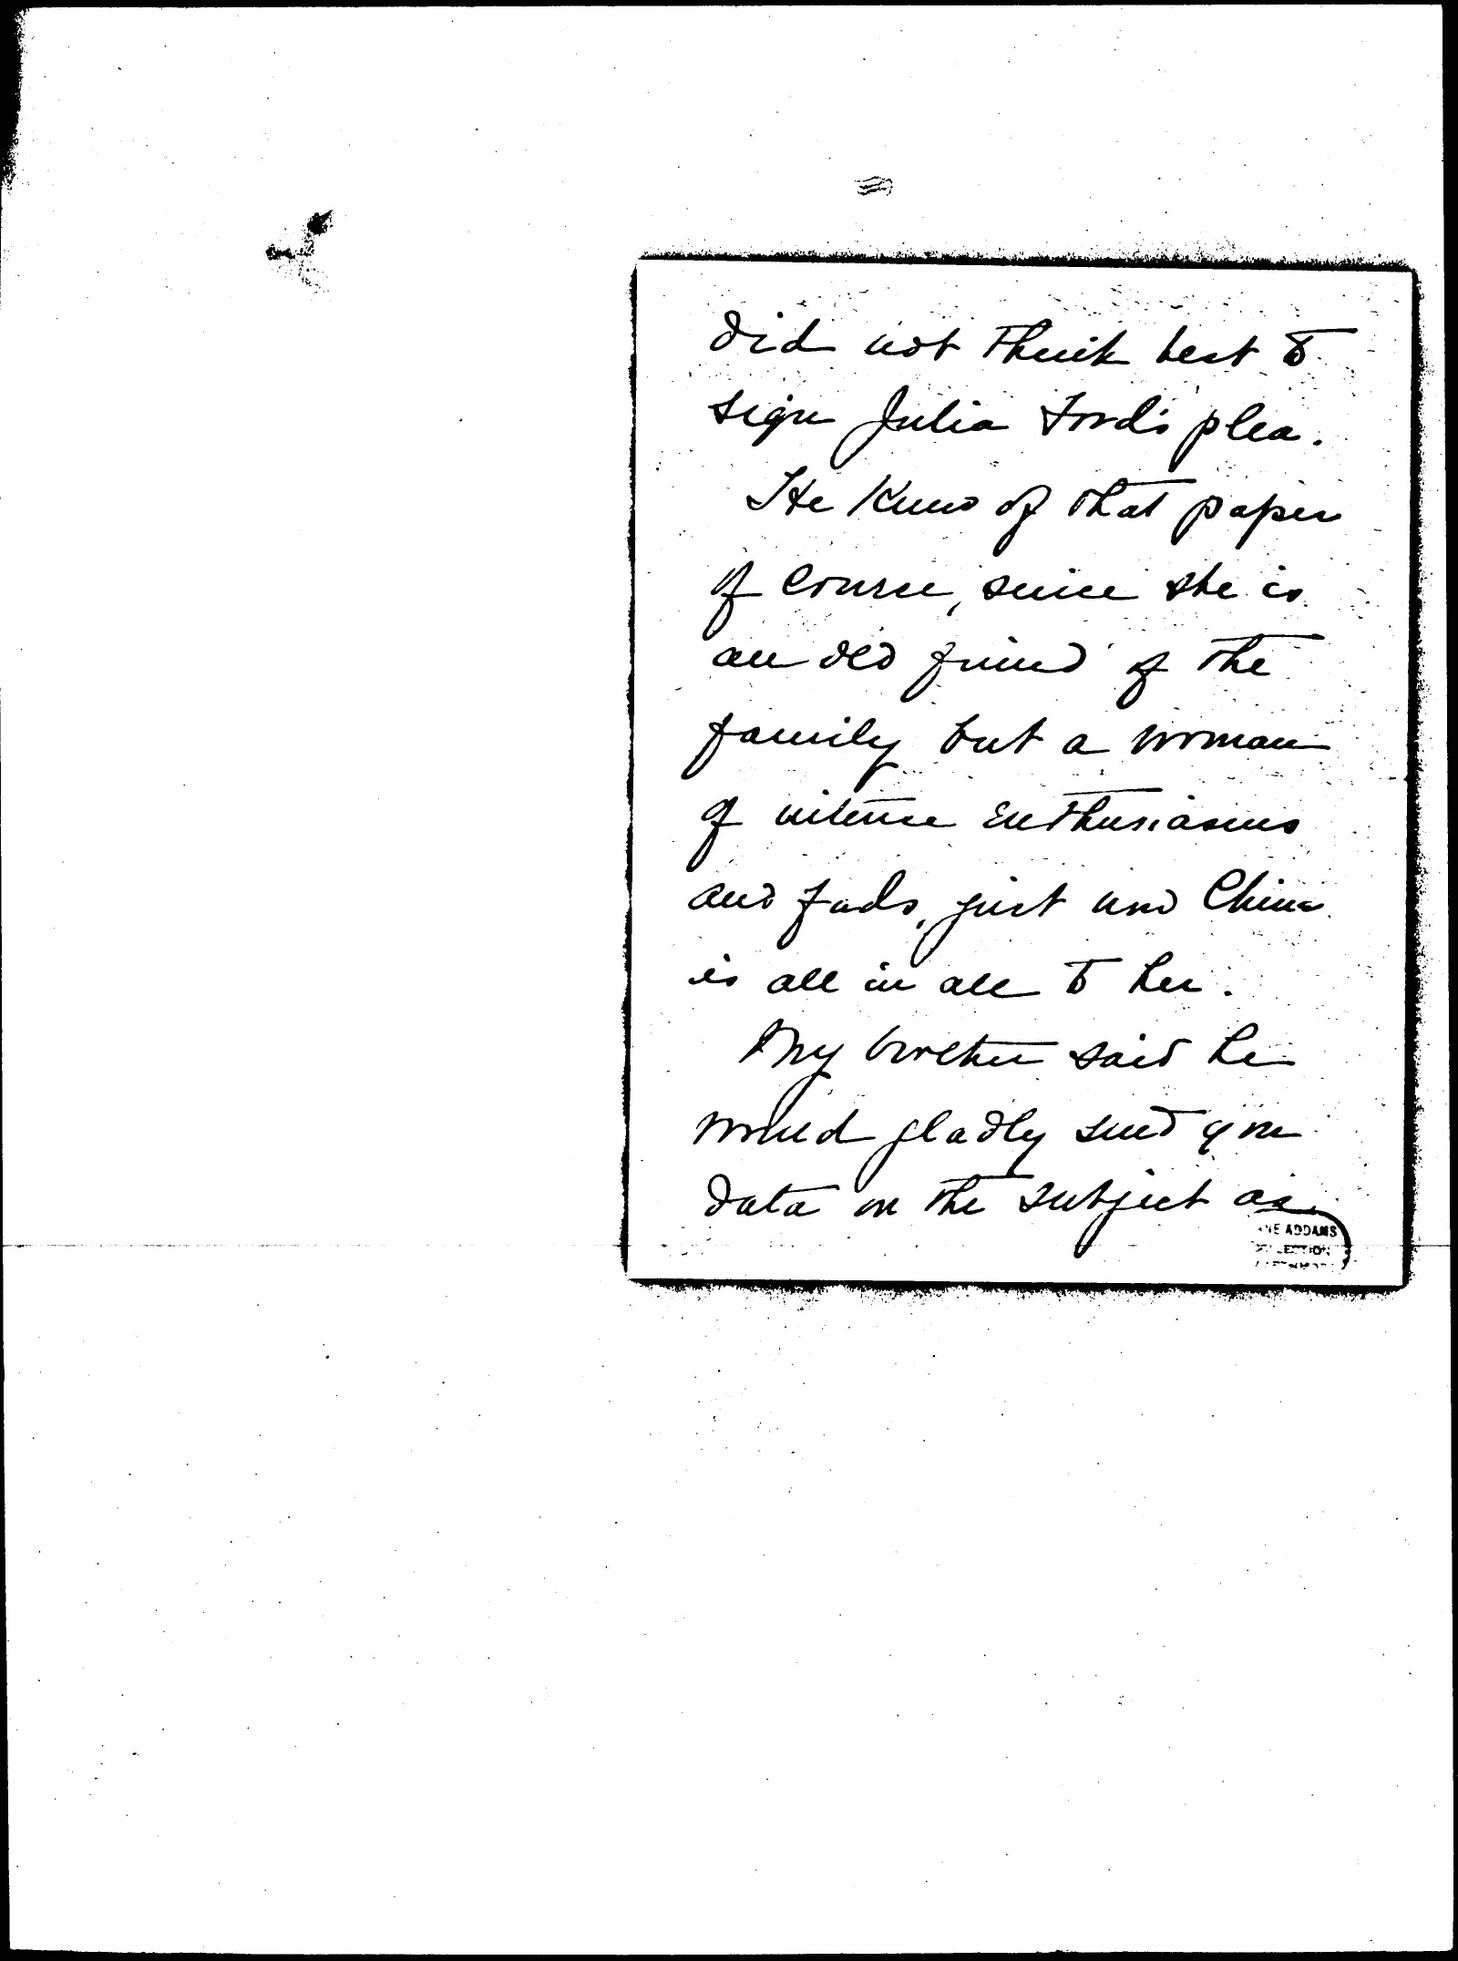 did not think best to
sign Julia Ford's plea.
He knew of that paper
of course, since she is
an old friend of the
family but a woman
of intense enthusiasms
and fads, just now China
is all in all to her.
My brother said he
would gladly send you
data on the subject as
NE ADDAMS
LECTION